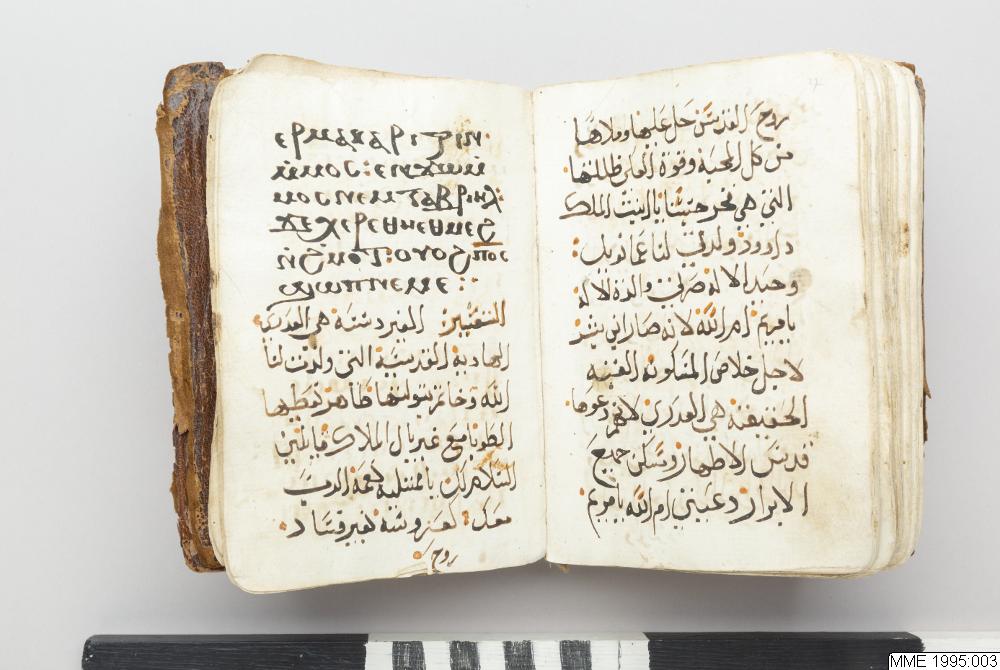 ⲉⲣⲙⲁⲕⲁⲣⲓⲍⲓⲛ
ⲙ̀ⲙⲟⲥ: ⲉⲛϫⲱ ⲙ̀
ⲙⲟⲥ ⲛⲉⲙ ⲅⲁⲃⲣⲓⲏⲗ:
ϫⲉ ⲭⲉⲣⲉ ⲑⲏⲉⲑⲙⲉϩ
ⲛ̀ϩⲙⲟⲧ: ⲟⲩⲟϩ ⲡ̅ⲟ̅ⲥ̅
ϣⲱⲡ ⲛⲉⲙⲉ:
التفسير: الغير دنسة هي العدرى
الهادية القديسة التي ولدت لنا
الله وخاتم بتوليتها طاهر نعطيها
الطوبا مع غبريال الملاك قايلين
السلام لكن يا ممتلية نعمة الرب
معك: لعروسة لغير فساد.
روح
روح القدس حل عليها وملاها
من كل المحبة وقوة العلى ظللتها
التي هي فخر جنسنا بالبيت الملك
داوود ولدت لنا عمانويل:
وحيد الاله صرتي والدة الاله
يا مريم ام الله لانه صار ابن بشر
لاجل خلاص المسكونه القبه
الحقيقية هي العدرى لانهم دعوها
قديس الاطهار ومسكن جميع
الابرار دعيتي ام الله يا مريم
MME 1995:003